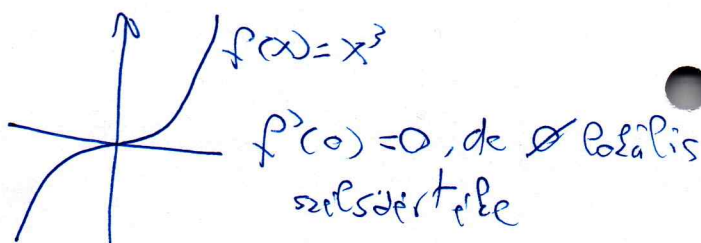 f(x)=x³
f'(0)=0, de ∅ lokális
szélsőértéke